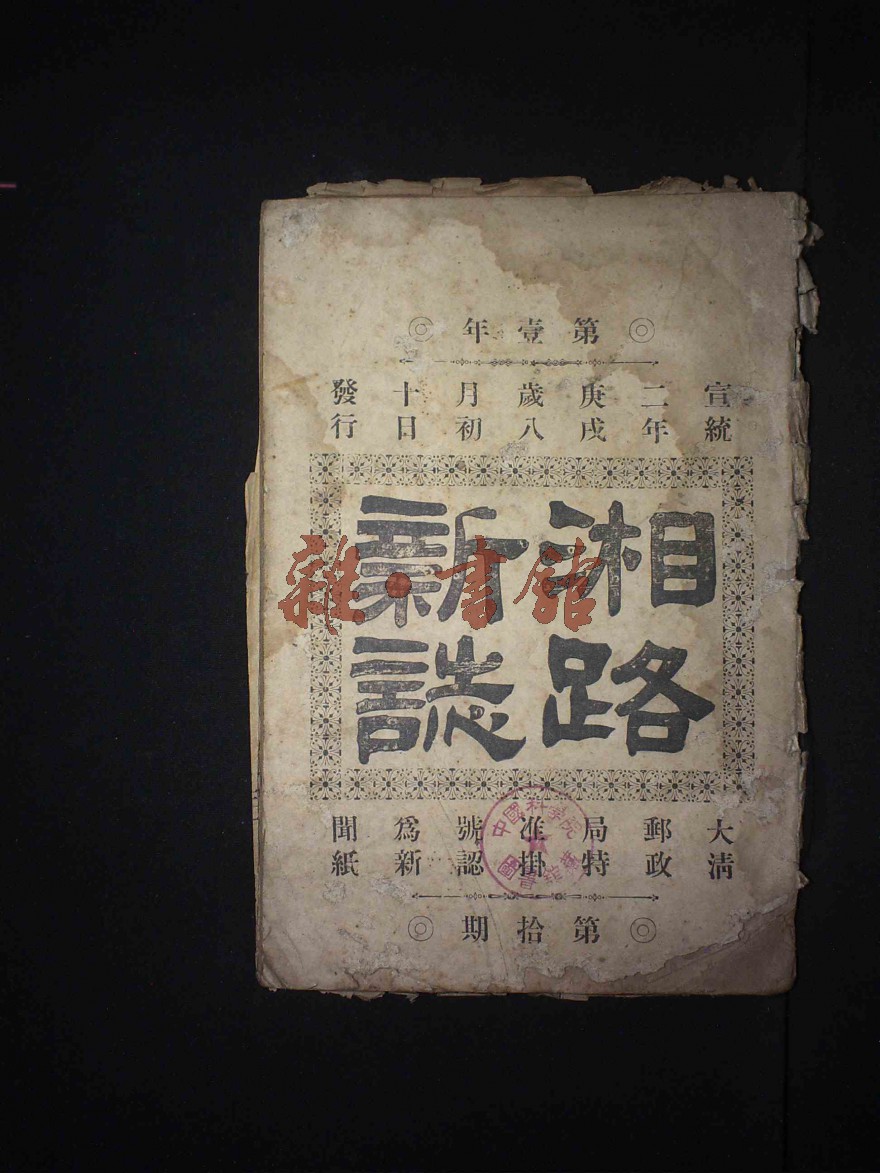 ◎第壹年◎
宣統二年庚戌歲八月初十日發行
湘路
新誌
大清郵政局特准掛號認爲新聞紙
◎第拾期◎
雜·書館
中國科學院